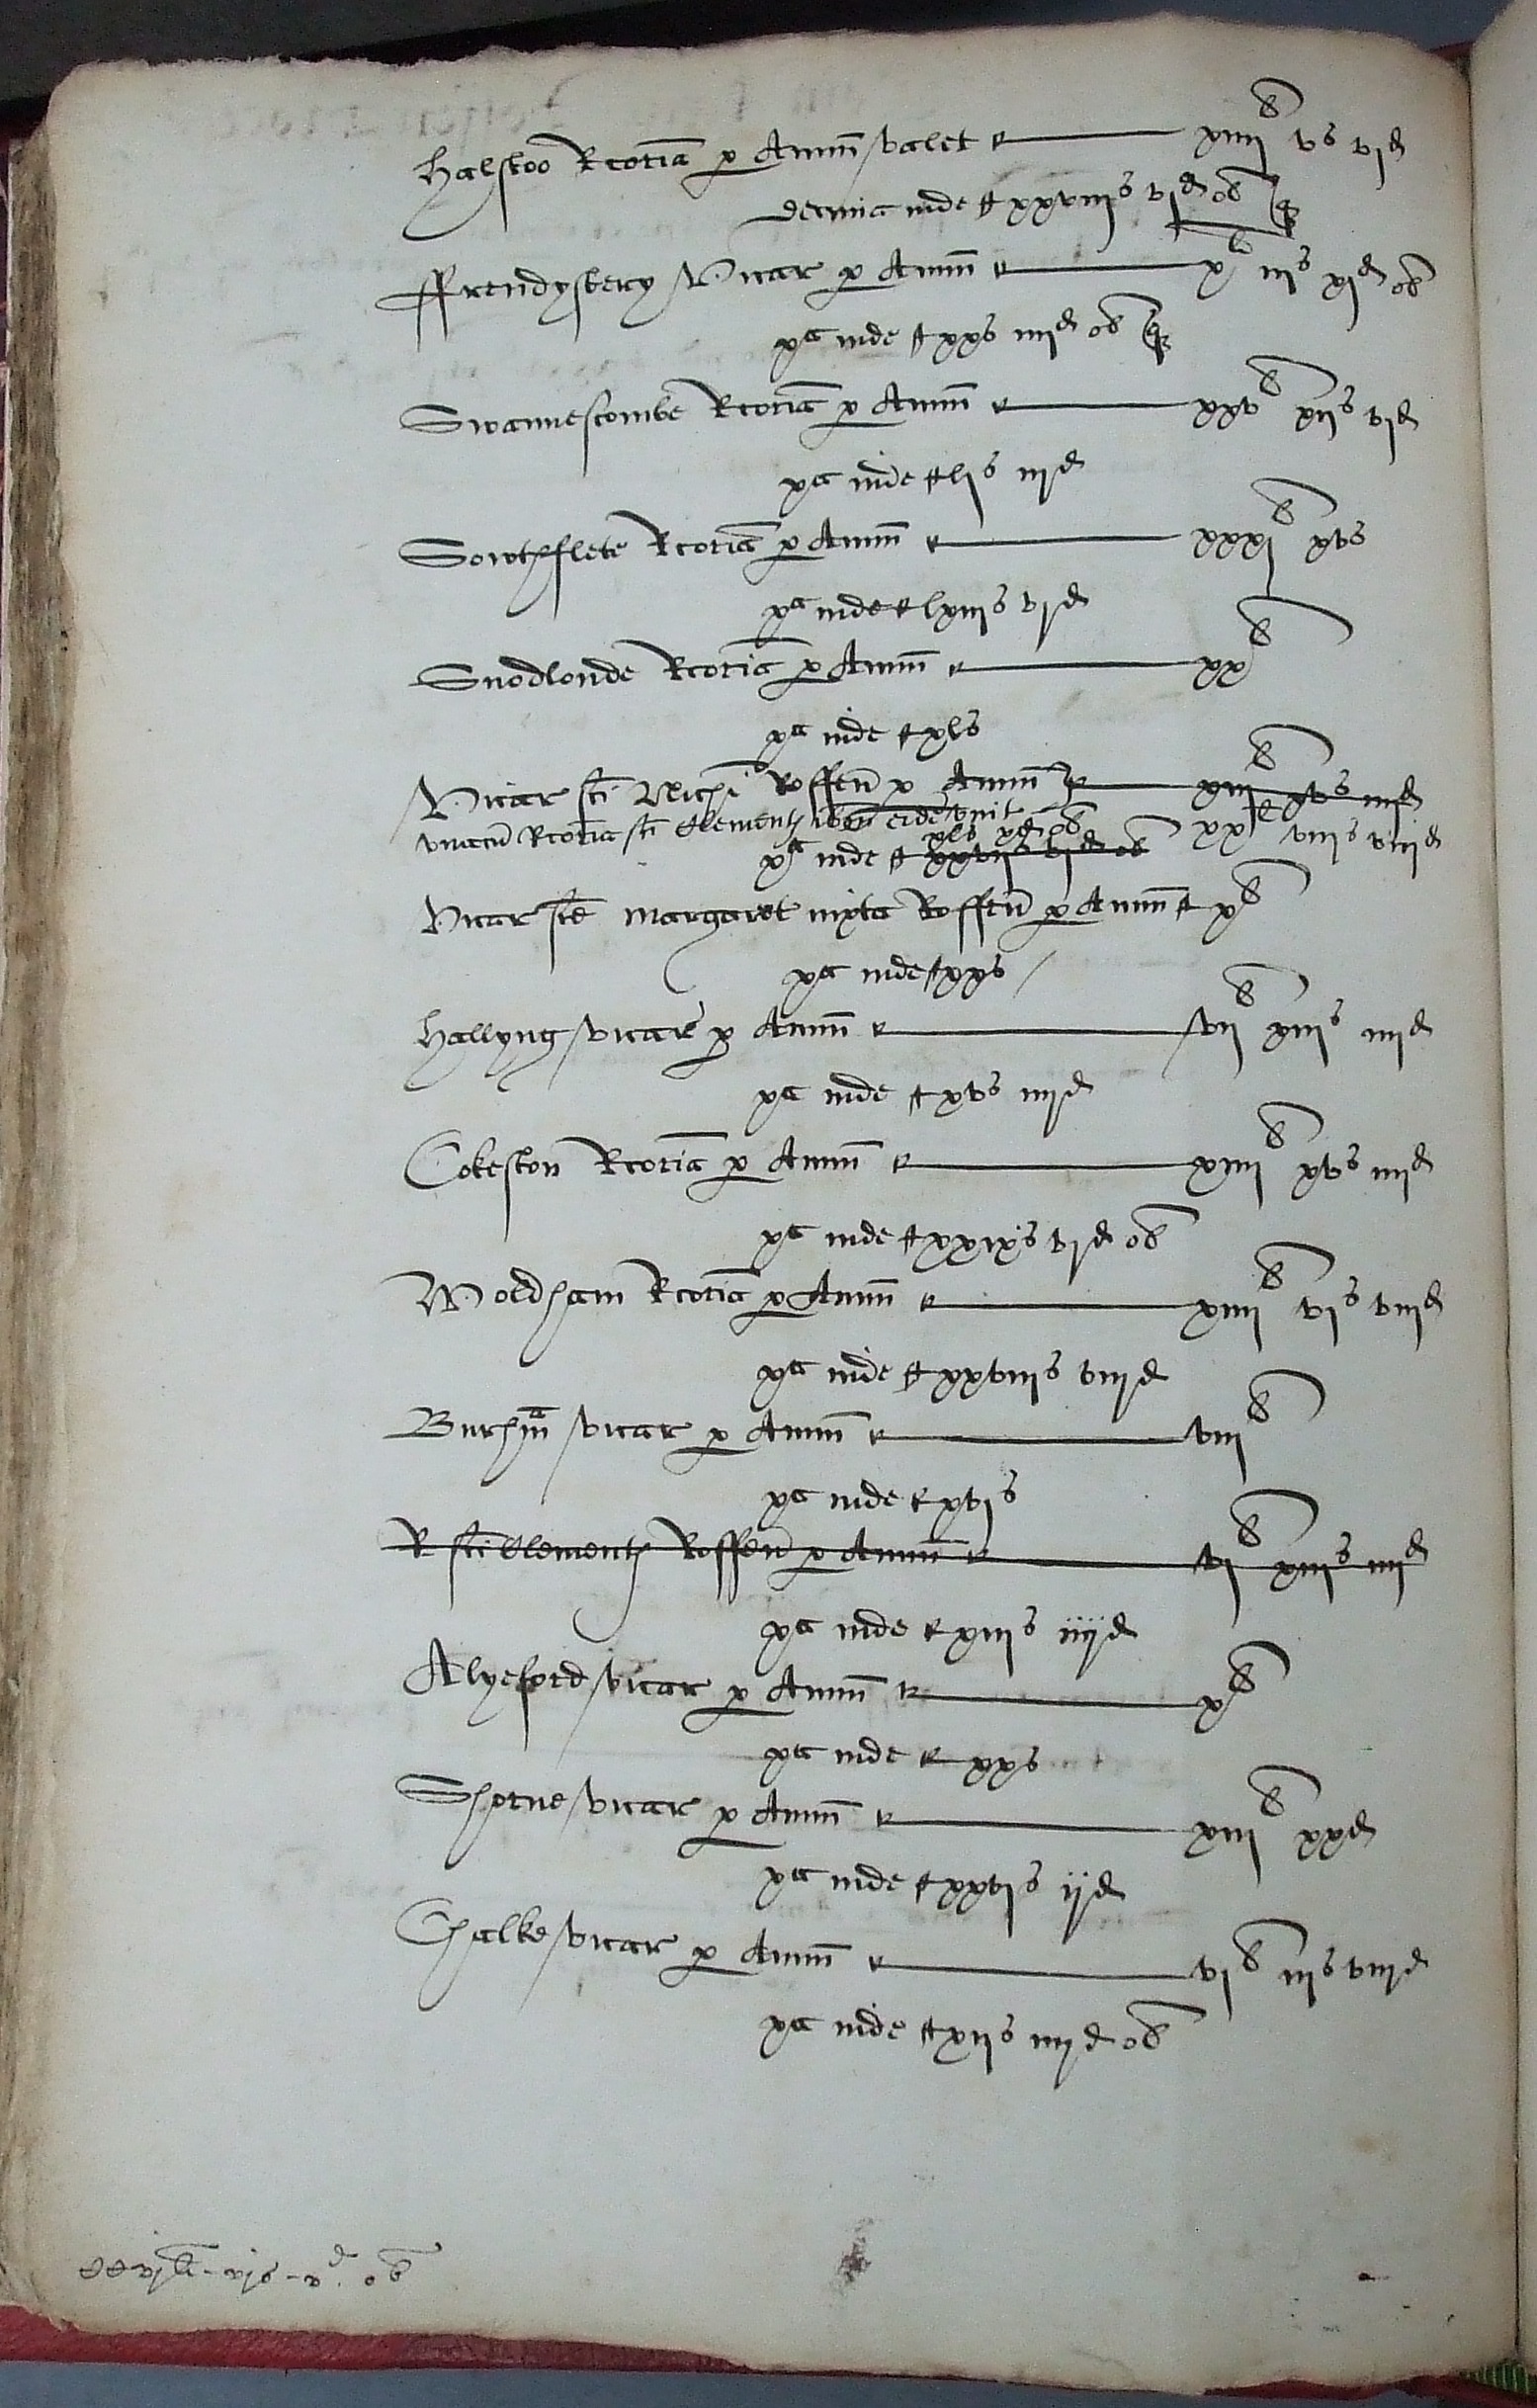 Halstoo Rcoria p Annu valet — xiiij li vs vjd
decima inde xxviijs vjd ob q
ffrendysbery Vicar p Annu — xj li iijs xjd ob
xa inde xxs iiijd ob q
Swannescombe Rcoria p Annu — xxv li xijs vjd
xa inde ljs iijd
Sowthflete Rcoria p Annu — xxxj li xvs
xa inde lxiijs vjd
Snodlonde Rcoria p Annu — xx li
xa inde xls
Vicar sci Nichi Roffen p Annu — xiij li xvs iiijd
unacu Rcoria sci Clement ibm eidem unit xx li viijs viijd
xls xd ob
xa inde xxvijs vjd ob
Vicar sce Margaret iuxta Roffen p Annu x li
xa inde xxs
Hallyng vicar p Annu — vij li xiijs iiijd
xa inde xvs iiijd
Cokeston Rcoria p Annu — xiiij li xvs iiijd
xa inde xxixs vjd ob
Woldham Rcoria p Annu — xiiij li vjs viijd
xa inde xxviijs viijd
Burhm vicar p Annu — viij li
xa inde xvjs
R sci Clement Roffen p Annu — vj li xiijs iiijd
xa inde xiijs iiijd
Alyeford vicar p Annu — x li
xa inde xxs
Shorne vicar p Annu — xiij li xxd
xa inde xxvjs ijd
Chalke vicar p Annu — vj li iijs viijd
xa inde xijs iiijd ob
ccvj li - vjs - vd ob